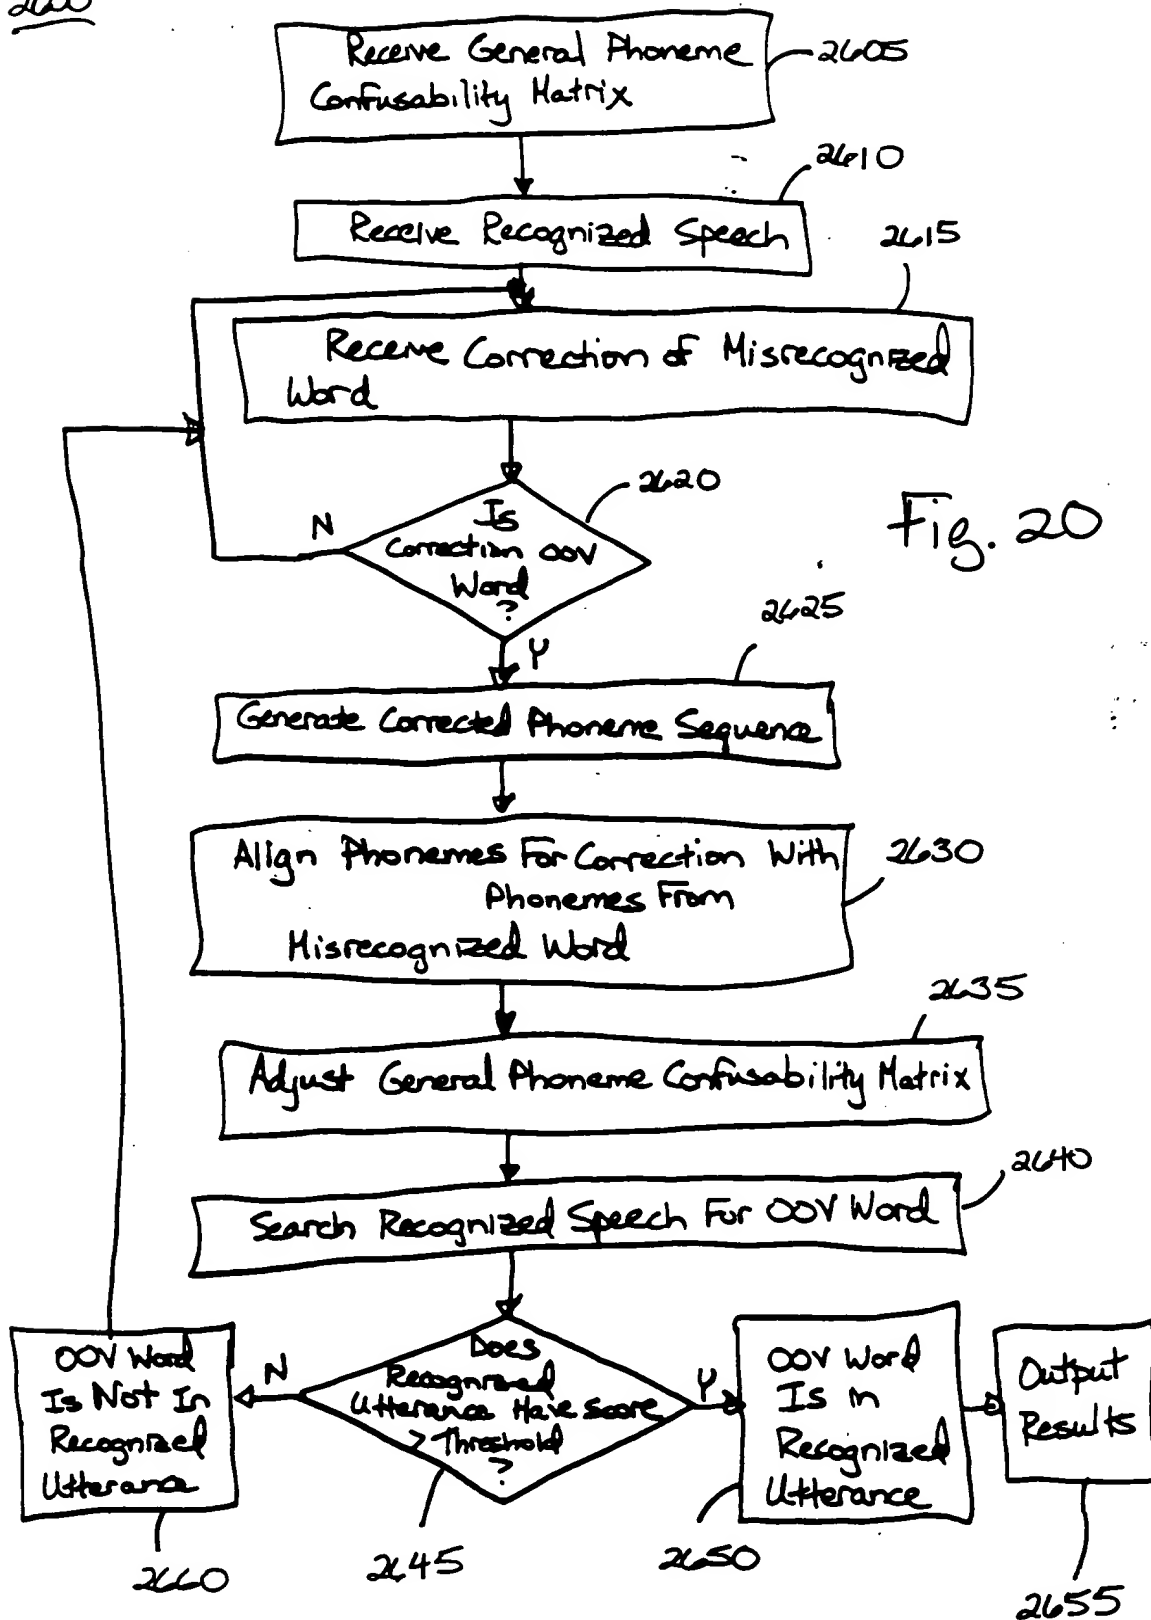 2600
Receive General Phoneme
Confusability Matrix
2605
2610
Receive Recognized Speech
2615
Receive Correction of Misrecognized
Word
2620
N
Is
Correction OOV
Word
?
Fig. 20
Y
2625
Generate Corrected Phoneme Sequence
Align Phonemes For Correction With
Phonemes From
Misrecognized Word
2630
2635
Adjust General Phoneme Confusability Matrix
2640
Search Recognized Speech For OOV Word
OOV Word
Is Not In
Recognized
Utterance
N
Does
Recognized
Utterance Have Score
> Threshold
?
Y
OOV Word
Is in
Recognized
Utterance
Output
Results
2660
2645
2650
2655